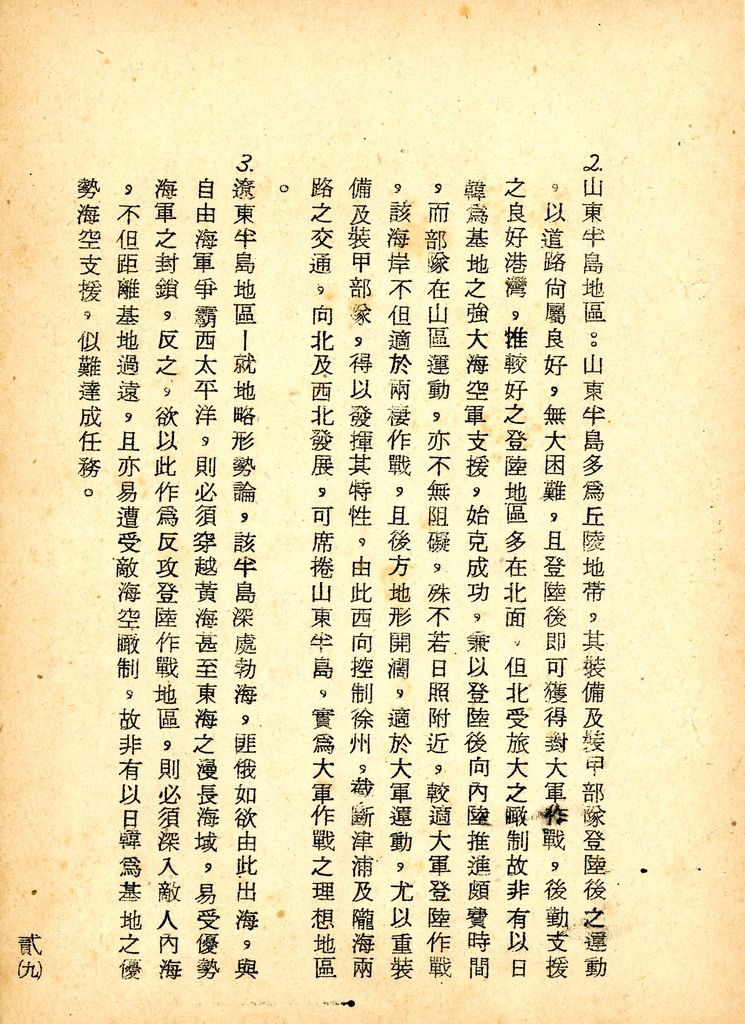 2.山東半島地區：山東半島多爲丘陵地帶，其裝備及裝甲部隊登陸後之運動
，以道路尙屬良好，無大困難，且登陸後即可獲得對大軍作戰，後勤支援
之良好港灣，惟較好之登陸地區多在北面，但北受旅大之瞰制故非有以日
韓爲基地之強大海空軍支援，始克成功，兼以登陸後向內陸推進頗費時間
，而部隊在山區運動，亦不無阻礙，殊不若日照附近，較適大軍登陸作戰
，該海岸不但適於兩棲作戰，且後方地形開濶，適於大軍運動，尤以重裝
備及裝甲部隊，得以發揮其特性，由此西向控制徐州，截斷津浦及隴海兩
路之交通，向北及西北發展，可席捲山東半島，實爲大軍作戰之理想地區
。
3.遼東半島地區－就地略形勢論，該半島深處勃海，匪俄如欲由此出海，與
自由海軍爭霸西太平洋，則必須穿越黃海甚至東海之漫長海域，易受優勢
海軍之封鎖，反之，欲以此作爲反攻登陸作戰地區，則必須深入敵人內海
，不但距離基地過遠，且亦易遭受敵海空瞰制，故非有以日韓爲基地之優
勢海空支援，似難達成任務。
貳(九)